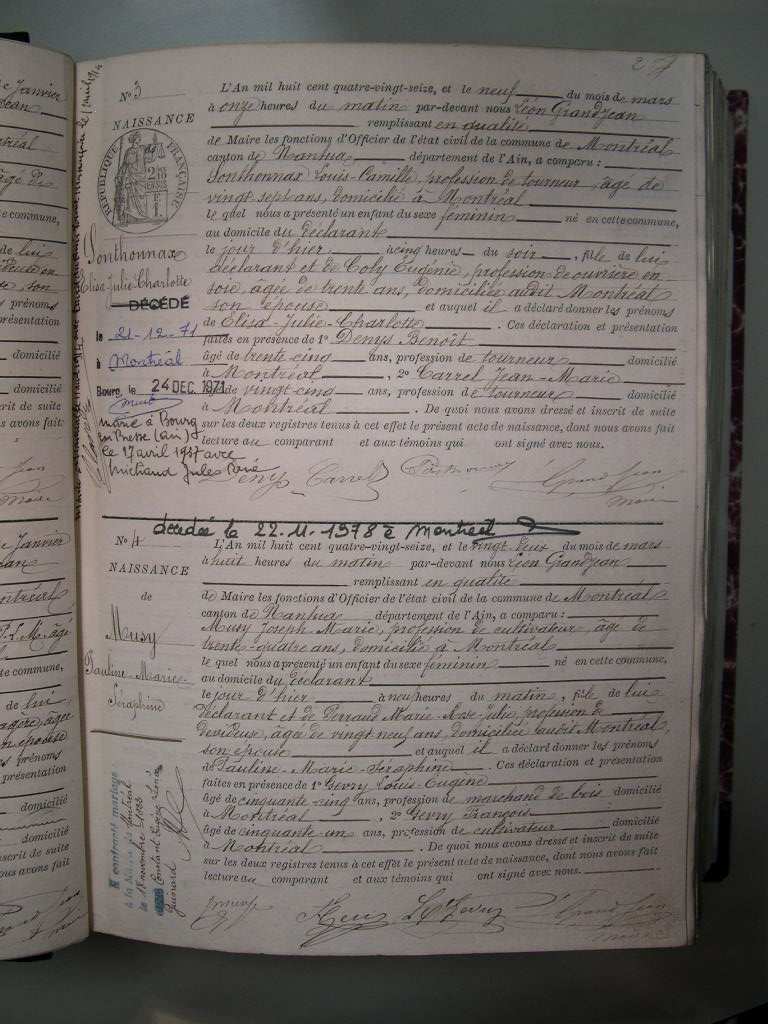 Nº 3
NAISSANCE
RÉPUBLIQUE FRANÇAISE
Sonthonnax
Elisa Julie Charlotte
DÉCÉDÉ
le 21-12-71
à Montréal
Bourg, le 24 DEC. 1971
marié à Bourg
en Bresse (ain)
le 17 avril 1937 avec
Michaud Jules René
L'An mil huit cent quatre-vingt-seize, et le neuf du mois de mars
à onze heures du matin par-devant nous Léon Grandjean
remplissant en qualité
de Maire les fonctions d'Officier de l'état civil de la commune de Montréal
canton de Nantua département de l'Ain, a comparu :
Sonthonnax Louis-Camille, profession de tourneur, âgé de
vingt sept ans, domicilié à Montréal
lequel nous a présenté un enfant du sexe feminin né en cette commune,
au domicile du déclarant
le jour d'hier à cinq heures du soir, fille de lui
déclarant et de Coly Eugénie, profession de ouvrière en
soie, agée de trente ans, domiciliée audit Montréal
son épouse et auquel il a déclaré donner les prénoms
de Elisa-Julie-Charlotte. Ces déclaration et présentation
faites en présence de 1º Denys Benoît
âgé de trente cinq ans, profession de tourneur domicilié
à Montréal, 2º Carrel Jean-Marie
âgé de vingt cinq ans, profession de tourneur domicilié
à Montréal. De quoi nous avons dressé et inscrit de suite
sur les deux registres tenus à cet effet le présent acte de naissance, dont nous avons fait
lecture au comparant et aux témoins qui ont signé avec nous.
Denys Carrel Grand Jean
maire
décédée le 22.11.1978 à Montréal
Nº 4
NAISSANCE
de
Musy
Pauline-Marie-
Séraphine
A contracté mariage
à la Mairie de Montréal
le
Constant
Guinard
L'An mil huit cent quatre-vingt-seize, et le vingt deux du mois de mars
à huit heures du matin par-devant nous Léon Grandjean
remplissant en qualité
de Maire les fonctions d'Officier de l'état civil de la commune de Montréal
canton de Nantua département de l'Ain, a comparu :
Musy Joseph-Marie, profession de cultivateur, âgé de
trente-quatre ans, domicilié à Montréal
lequel nous a présenté un enfant du sexe feminin né en cette commune,
au domicile du déclarant
le jour d'hier à neuf heures du matin, fille de lui
déclarant et de Perraud Marie-Rose Julie profession de
dévideuse, agée de vingt neuf ans, domiciliée audit Montréal,
son épouse et auquel il a déclaré donner les prénoms
de Pauline-Marie-Séraphine. Ces déclaration et présentation
faites en présence de 1º Gevry Louis-Eugène
âgé de cinquante-cinq ans, profession de marchand de bois domicilié
à Montréal, 2º Gevry François
âgé de cinquante un ans, profession de cultivateur domicilié
à Montréal. De quoi nous avons dressé et inscrit de suite
sur les deux registres tenus à cet effet le présent acte de naissance, dont nous avons fait
lecture au comparant et aux témoins qui ont signé avec nous.
Gevry Grand Jean
maire